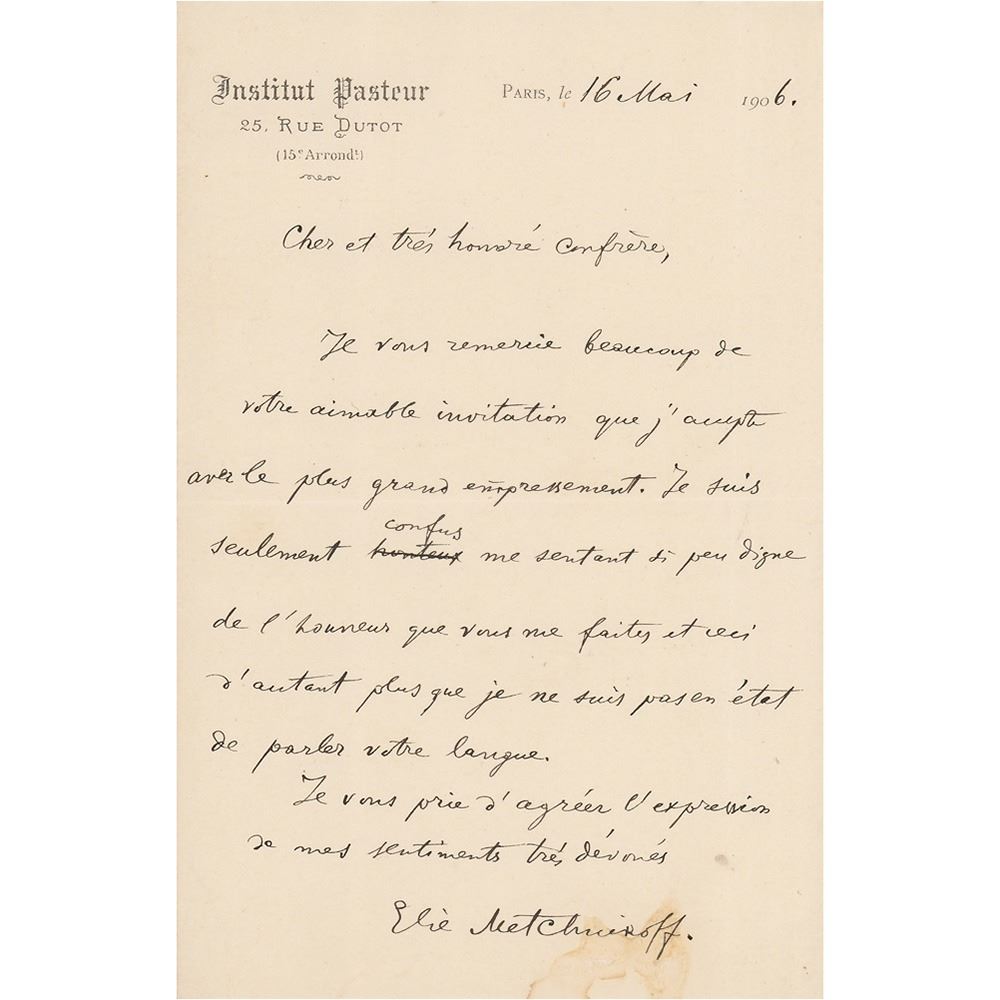 Institut Pasteur
25, RUE DUTOT
(15e Arrondt)
PARIS, le 16 Mai 1906.
Cher et très honoré Confrère,
Je vous remercie beaucoup de
votre aimable invitation que j'accepte
avec le plus grand empressement. Je suis
confus
seulement honteux me sentant si peu digne
de l'honneur que vous me faites et ceci
d'autant plus que je ne suis pas en état
de parler votre langue.
Je vous prie d'agréer l'expression
de mes sentiments très dévoués
Elie Metchnikoff.